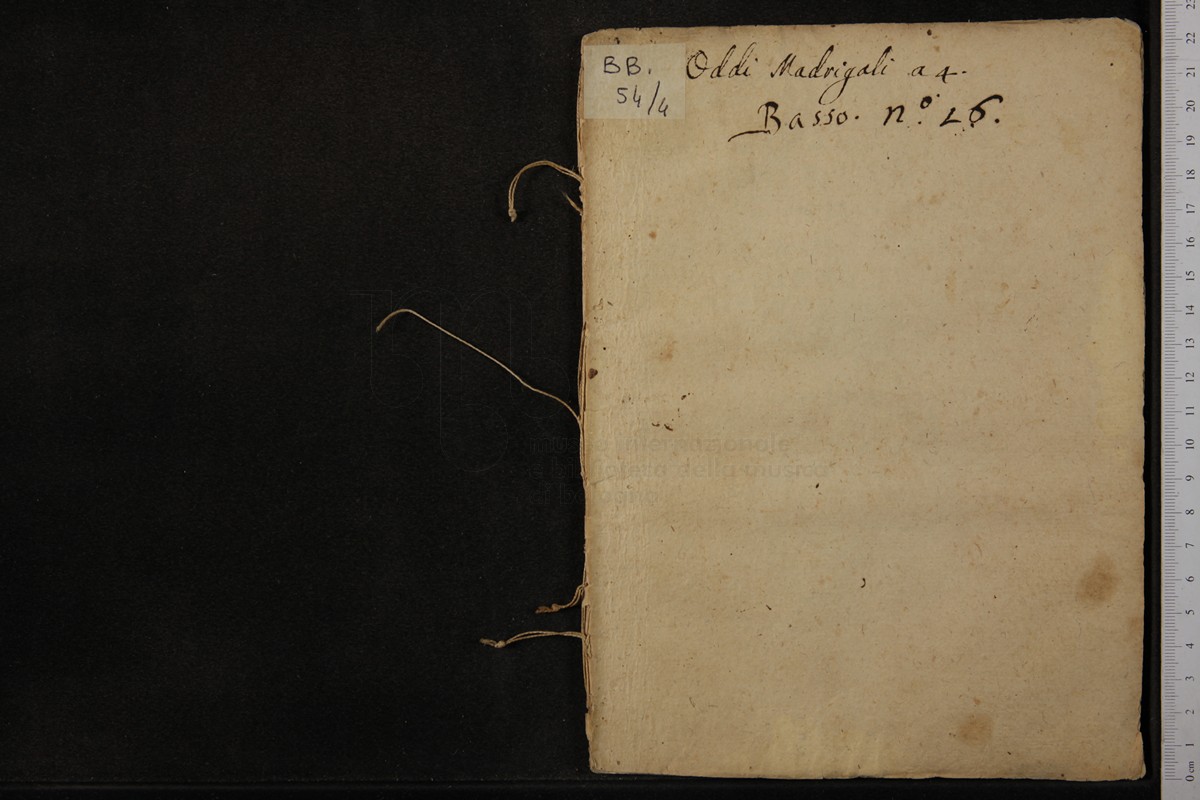 BB.
54/4
Oddi Madrigali a 4.
Basso. n.º 26.
museo internazionale
e biblioteca della musica
di bologna
0 cm 1 2 3 4 5 6 7 8 9 10 11 12 13 14 15 16 17 18 19 20 21 22 23